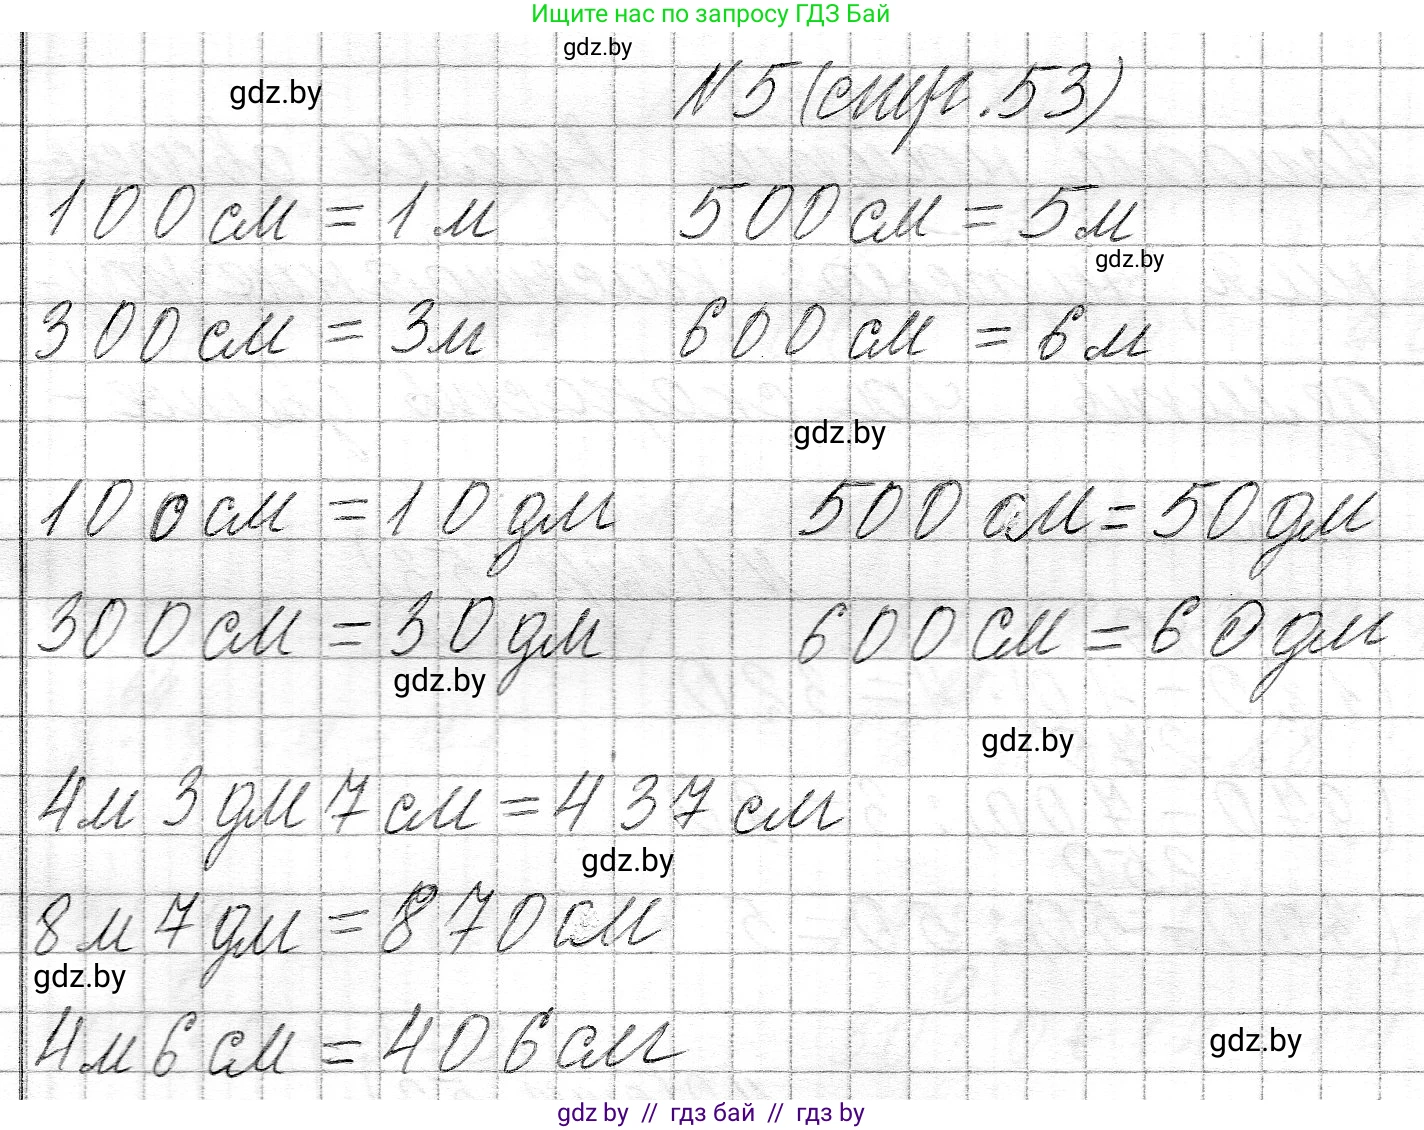 Ищите нас по запросу ГДЗ Бай
gdz.by
gdz.by
№ 5 (стр. 53)
100 см = 1 м 500 см = 5 м
gdz.by
300 см = 3 м 600 см = 6 м
gdz.by
100 см = 10 дм 500 см = 50 дм
300 см = 30 дм 600 см = 60 дм
gdz.by
gdz.by
4 м 3 дм 7 см = 437 см
gdz.by
8 м 7 дм = 870 см
gdz.by
4 м 6 см = 406 см
gdz.by
gdz by // гдз бай // гдз by